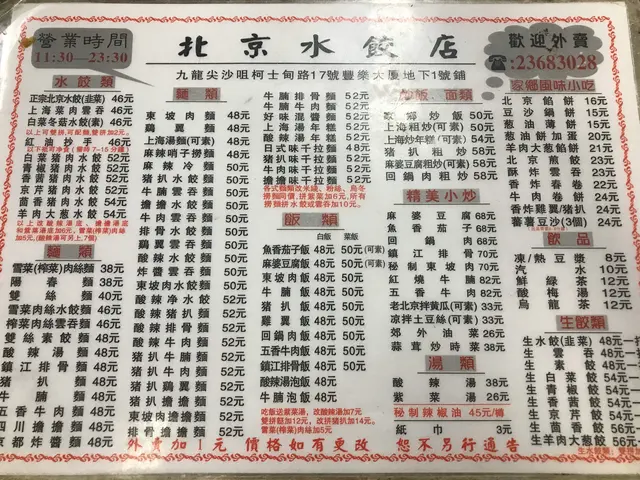 營業時間
11:30—23:30
北京水餃店
九龍尖沙咀柯士甸路17號豐樂大廈地下1號鋪
歡迎外賣
☎:23683028
水餃類
正宗北京水餃(韭菜) 46元
上海菜肉雲吞 46元
白菜冬菇水餃(素) 46元
以上可雙拼,可配麵,雙拼加2元。
紅油抄手 46元
白菜猪肉水餃 52元
青椒猪肉水餃 52元
茴香猪肉水餃 54元
羊肉大葱水餃 54元
麵類
雪菜(榨菜)肉絲麵 38元
陽春麵 38元
雙絲麵 40元
雪菜肉絲水餃麵 48元
榨菜肉絲雲吞麵 48元
雙絲素餃麵 48元
酸辣湯麵 48元
鎮江排骨麵 48元
猪扒麵 48元
牛腩麵 48元
五香牛肉麵 48元
四川擔擔麵 48元
京都炸醬麵 48元
麵類
東坡肉麵 48元
雞翼麵 48元
上海湯麵(可素) 48元
麻辣哨子撈麵 48元
麻辣冷麵 50元
猪扒雲吞麵 52元
牛腩雲吞麵 52元
擔擔水餃麵 52元
排骨水餃麵 52元
雞翼雲吞麵 52元
炸醬雲吞麵 52元
酸辣淨水餃 52元
猪扒牛腩麵 52元
猪扒雞翼麵 52元
猪扒擔擔麵 52元
東坡肉擔擔麵 52元
排骨擔擔麵 52元
牛腩排骨麵 52元
牛腩牛肉麵 52元
好味混醬麵 52元
上海湯年糕 52元
酸辣湯年糕 52元
日式味千拉麵 48元
牛腩味千拉麵 52元
猪扒味千拉麵 52元
牛扒味千拉麵 52元
飯類
白飯 菜飯
魚香茄子飯 48元 50元(可素)
麻婆豆腐飯 48元 50元(可素)
東坡肉飯 48元 50元
牛腩飯 48元 50元
猪扒飯 48元 50元
雞翼飯 48元 50元
回鍋肉飯 48元 50元
五香牛肉飯 48元 50元
鎮江排骨飯 48元 50元
酸辣湯泡飯 48元
牛腩湯泡飯 48元
吃飯送紫菜湯,改酸辣湯加7元
雙拼餸加12元,改拼猪扒加14元。
雪菜(榨菜)肉絲加5元
炒飯、面類
上海粗炒(可素) 50元
上海炒年糕(可素) 54元
猪扒粗炒 60元
麻婆豆腐粗炒(可素) 60元
回鍋肉粗炒 60元
精美小炒
麻婆豆腐 68元
魚香茄子 68元
回鍋肉 68元
鎮江排骨 70元
秘制東坡肉 70元
紅燒牛腩 82元
五香牛肉 82元
老北京拌黃瓜(可素) 33元
涼拌土豆絲(可素) 33元
郊外油菜 30元
蒜茸炒時菜 38元
湯類
酸辣湯 38元
紫菜湯 26元
秘制辣椒油 45元/樽
紙巾 3元
家鄉風味小吃
北京餡餅 16元
豆沙鍋餅 15元
葱油薄餅 15元
北京煎餃 23元
酥炸雲吞 23元
香炸春卷 22元
牛肉卷餅 24元
香炸雞翼/猪扒 24元
蕃薯豆沙(3個) 24元
飲品
凍/熱豆漿 8元
汽水 10元
鮮綠茶 12元
酸梅湯 12元
烏龍茶 12元
生餃類
生水餃(韭菜) 48元
生雲吞 48元
生素餃 48元
生白菜餃 54元
生青椒餃 54元
生茴香餃 56元
生羊肉大葱餃 56元
外賣加1元 價格如有更改 恕不另行通告